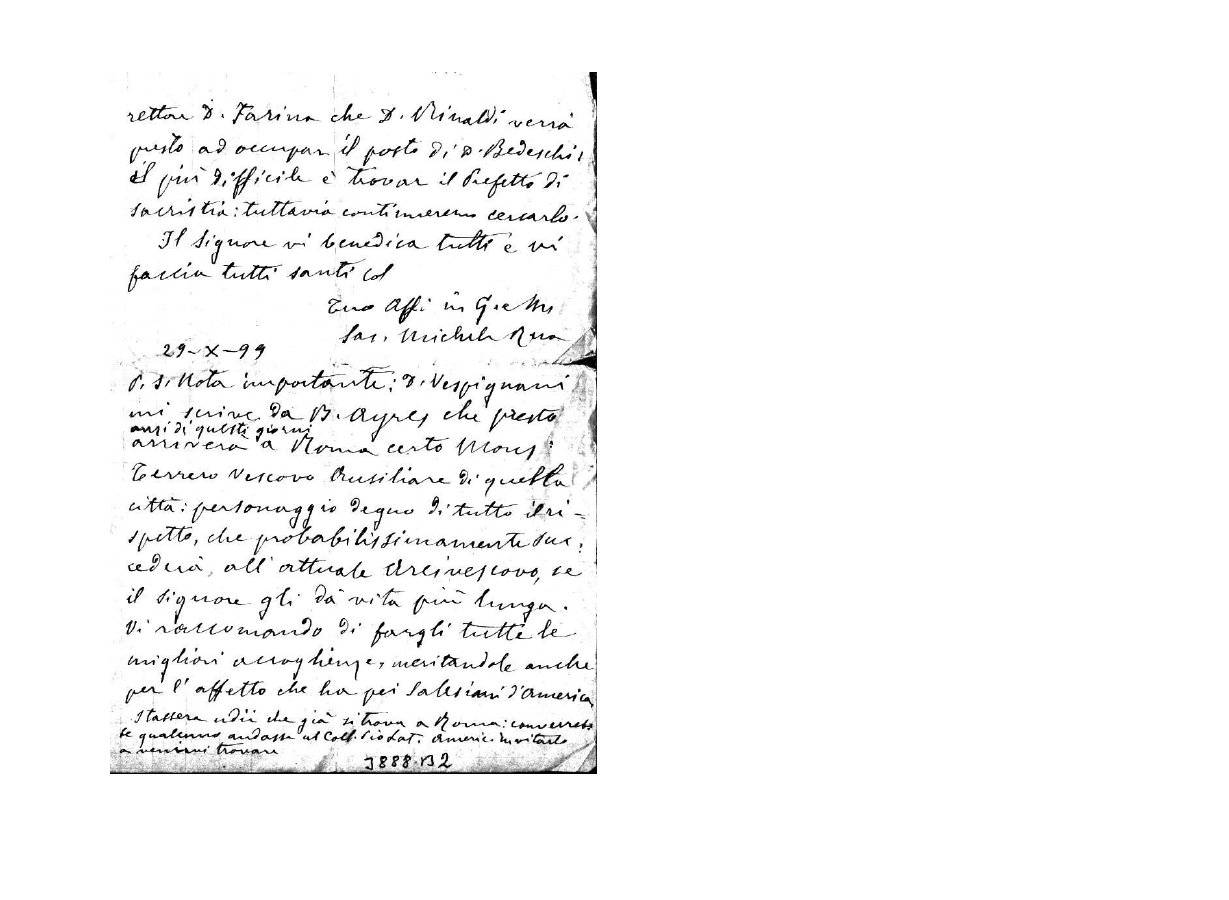 rettore D. Farina che D. Rinaldi verrà
presto ad occupar il posto di D. Bedeschi;
il più difficile è trovar il Prefetto di
sacristia: tuttavia continueremo cercarlo.
Il Signore vi benedica tutti e vi
faccia tutti santi col
Tuo Aff. in G. e M.
Sac. Michele Rua
29-X-99
P. S. Nota importante; D. Vespignani
mi scrive da B. Ayres che presto
anzi di questi giorni
arriverà a Roma certo Mons.
Terrero Vescovo Ausiliare di quella
città: personaggio degno di tutto il ri-
spetto, che probabilissimamente suc-
cederà, all'attuale Arcivescovo, se
il signore gli dà vita più lunga.
Vi raccomando di fargli tutte le
migliori accoglienze, meritandole anche
per l'affetto che ha pei Salesiani d'America
Stassera udii che già si trova a Roma: converrebbe
se qualcuno andasse al Coll. Pio Lat. Americ. invitarlo
a venirvi trovare
3888 B2